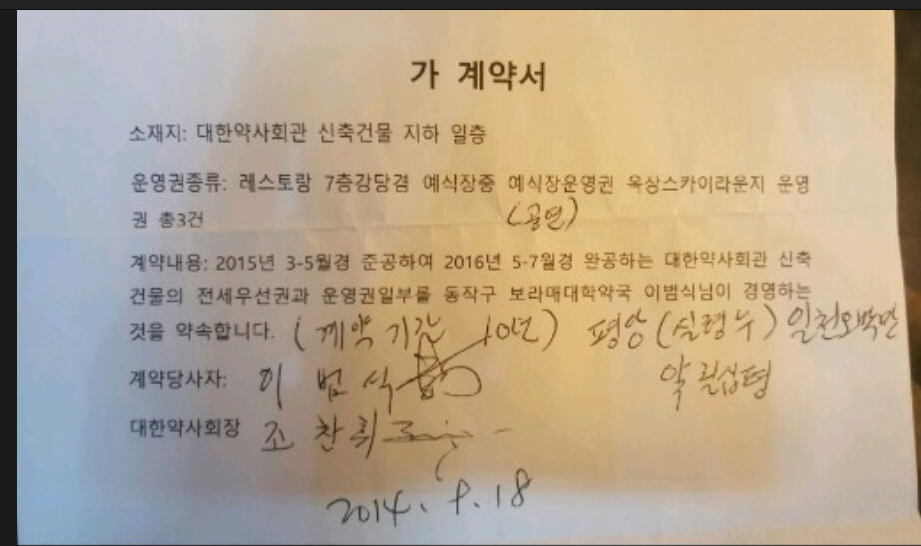 가 계약서
소재지: 대한약사회관 신축건물 지하 일층
운영권종류: 레스토랑 7층강당겸 예식장중 예식장운영권 옥상스카이라운지 운영
권 총3건 (공연)
계약내용: 2015년 3-5월경 준공하여 2016년 5-7월경 완공하는 대한약사회관 신축
건물의 전세우선권과 운영권일부를 동작구 보라매대학약국 이범식님이 경영하는
것을 약속합니다. (계약기간 10년) 평당 (실평수) 일천오백만
계약당사자: 이 범 식 약 칠십평
대한약사회장 조 찬 휘
2014. 9. 18